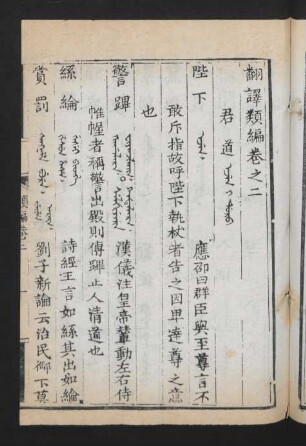 翻譯類編卷之二
君道
陛下 應卲曰群臣與至尊言不
敢斥指故呼陛下執杖者告之因卑達尊之意
也
警蹕 漢儀注皇帝輦動左右侍
帷幄者稱警出殿則傳蹕止人清道也
絲綸 詩經王言如絲其出如綸
賞罰 劉子新論云治民御下莫
類編卷二